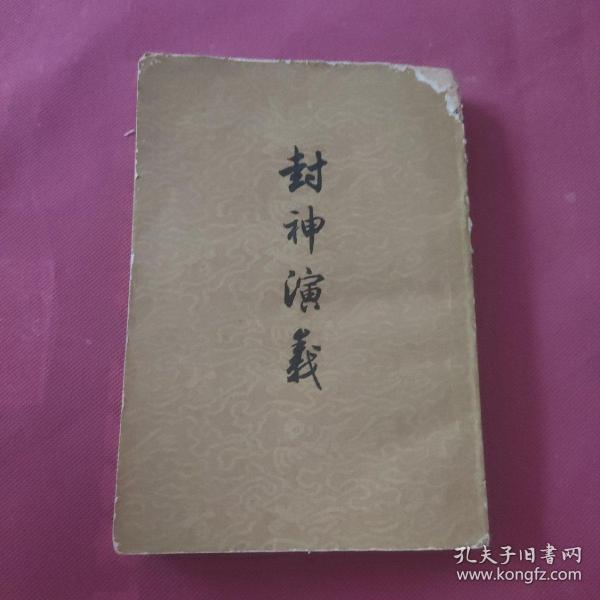 封神演義
孔夫子旧書网
www.kongfz.com